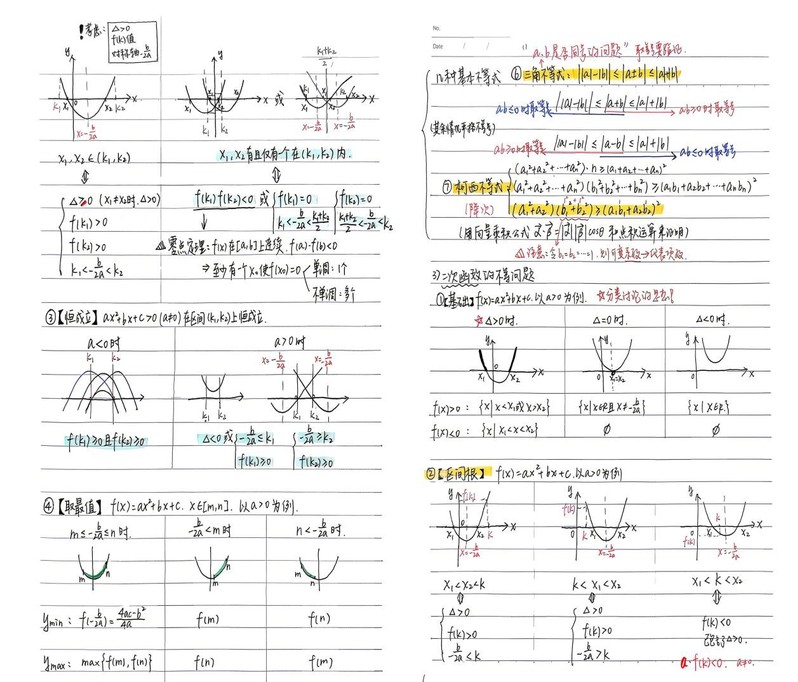 !考虑:
△>0
f(k)值
对称轴-b/2a
y
x
k₁ x₁ 0 x₂ k₂
x=-b/2a
或
(k₁+k₂)/2
x=-b/2a x=-b/2a
x₁,x₂∈(k₁,k₂)
x₁,x₂有且仅有一个在(k₁,k₂)内.
⇕ ⇕
△≥0 (x₁≠x₂时,△>0)
f(k₁)>0
f(k₂)>0
k₁<-b/2a<k₂
f(k₁)f(k₂)<0 或
f(k₁)=0
k₁<-b/2a<(k₁+k₂)/2
f(k₂)=0
(k₁+k₂)/2<-b/2a<k₂
△零点定理:f(x)在[a,b]上连续.f(a)·f(b)<0
⇒至少有一个x₀使f(x₀)=0
单调:1个
不单调:多个
③【恒成立】ax²+bx+c>0(a≠0)在区间(k₁,k₂)上恒成立.
a<0时 a>0时
k₁ k₂
k₁ k₂
x=-b/2a x=-b/2a
k₁ k₂
f(k₁)≥0且f(k₂)≥0
△<0或
-b/2a≤k₁
f(k₁)≥0
-b/2a≥k₂
f(k₂)≥0
④【取最值】f(x)=ax²+bx+c. x∈[m,n]. 以a>0为例.
m≤-b/2a≤n时 -b/2a<m时 n<-b/2a时.
m n m n m n
ymin: f(-b/2a)=(4ac-b²)/4a f(m) f(n)
ymax: max{f(m),f(n)} f(n) f(m)
No.
Date / /
a,b是否同号的问题"
几种基本不等式 ⑥三角不等式: ||a|-|b||≤|a±b|≤|a|+|b|
ab≤0时取等号 ||a|-|b||≤|a+b|≤|a|+|b| ab≥0时取等号
ab≥0时取等号 ||a|-|b||≤|a-b|≤|a|+|b| ab≤0时取等号
(a₁²+a₂²+…+aₙ²)·n≥(a₁+a₂+…+aₙ)²
⑦柯西不等式:(a₁²+a₂²+…+aₙ²)(b₁²+b₂²+…+bₙ²)≥(a₁b₁+a₂b₂+…+aₙbₙ)²
(降次) (a₁²+a₂²)(b₁²+b₂²)≥(a₁b₁+a₂b₂)²
(用向量乘积公式 α·β=|α||β|cosθ 和点积运算来证明)
△注意:令b₁=b₂=…=1,
3)二次函数的不等问题
①【基础】f(x)=ax²+bx+c.以a>0为例.
☆△>0时. △=0时. △<0时.
y y y
x₁ x₂ x x₁=x₂ x x
f(x)>0: {x|x<x₁或x>x₂} {x|x∈R且x≠-b/2a} {x|x∈R}
f(x)<0: {x|x₁<x<x₂} ∅ ∅
②【区间根】f(x)=ax²+bx+c.以a>0为例
y f(k) y y
f(k) k f(k)
x₁ x₂ k x x₁ x₂ x x₁ x₂ x
x=-b/2a x=-b/2a x=-b/2a
x₁<x₂<k k<x₁<x₂ x₁<k<x₂
⇕ ⇕ ⇕
△>0 △>0 f(k)<0
f(k)>0 f(k)>0 △>0.
-b/2a<k -b/2a>k a·f(k)<0. a≠0.